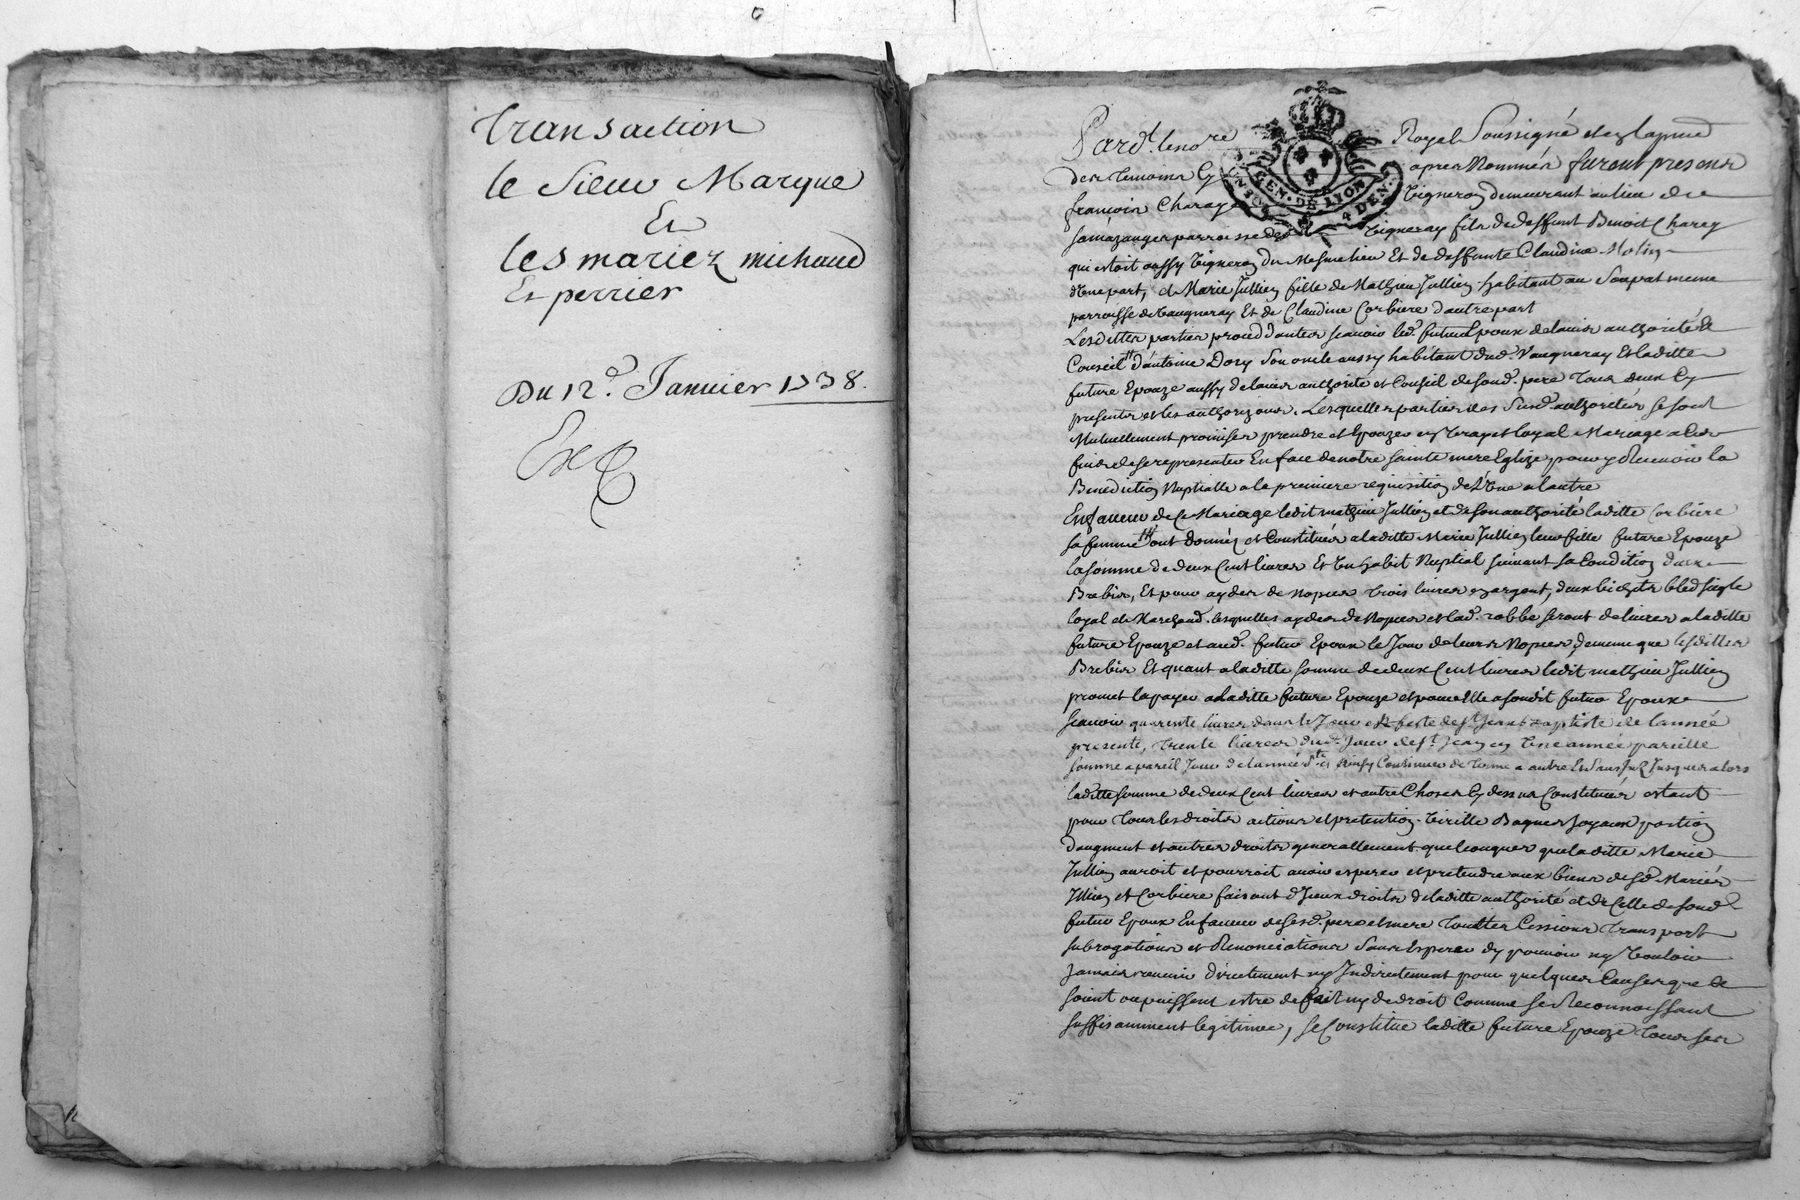 Transaction
le Sieur Marque
Et
les mariez michaud
Et perrier
Du 12e. Janvier 1738.
Exp
GEN. DE LYON
4 DEN.
Pard.t le no.re Royal Soussigné et en la pnce
des temoins Cy apres Nommés furent presens
françois Charey Vigneron demeurant au lieu de
parroisse de Vaugneray fils de deffunt Benoit Charey
qui estoit aussy Vigneron du Mesme lieu Et de deffunte Claudine Molin
d'Une part, et Marie Jullien fille de Mathieu Jullien habitant au Soupat meme
parroisse de Vaugneray Et de Claudine Corbiere d'autre part
Lesdittes parties proced d'autes scavoir led. futur Epoux de lavis authorité &
Conseil d'antoine Dory Son oncle aussy habitant dud. Vaugneray Et laditte
future Epouze aussy de lavis authorité et Conseil de sond. pere tous deux Cy
presents et les authorizans. Lesquelles parties des Susd. authorités se sont
Mutuellement promises prendre et Epouzer en vray et loyal Mariage a led
fin de se representer En face de notre sainte mere Eglize pour y Recevoir la
Benediction Nuptialle a la premiere requisition de l'Une a lautre
En faveur de Ce Mariage ledit mathieu Jullien et de son authorité laditte Corbiere
sa femme ont donnés et Constitués a laditte Marie Jullien leur fille future Epouze
la somme de deux Cent livres Et Un habit Nuptial suivant sa Condition
Brebis, Et pour ayder de Nopces trois livres en argent, deux bichets bled seigle
loyal et Marchand. lesquelles ayder de Nopces et lad. robbe seront delivrés a laditte
future Epouze et aud. futur Epoux le Jour de leurs Nopces, de meme que lesdittes
Brebis Et quant a laditte somme de deux Cent livres ledit mathieu Jullien
promet la payer a laditte future Epouze et pour Elle a sondit futur Epoux
scavoir quarente livres dans le Jour & feste de st Jean baptiste de lannée
presente, trente livres dud. Jour de st. Jean en Une année pareille
somme a pareil Jour de lannée Ste. et Ainsy Continuer de terme a autre Et Sans Jnt Jusques alors
laditte somme de deux Cent livres et autre Choses Cy dessus Constitués estant
pour tous les droits actions et pretention. Vaisselle Bagues Joyaux portion
d'augment et autres droits generallement quelconques que laditte Marie
Jullien auroit et pourroit avoir esperer et pretendre aux biens desd. Mariés
Jllien et Corbiere faisant d'Jceux droits de laditte authorité et de Celle de sond.
futur Epoux En faveur de sesd. pere et mere touttes Cessions Transport
subrogations et Renonciations Sans Esperer dy pouvoir ny Vouloir
Jamais revenir directement ny Indirectement pour quelques Causes que Ce
soient ou puissent estre de fait ny de droit Comme se Reconnoissant
suffisamment legitimée, se Constitue laditte future Epouze tous ses